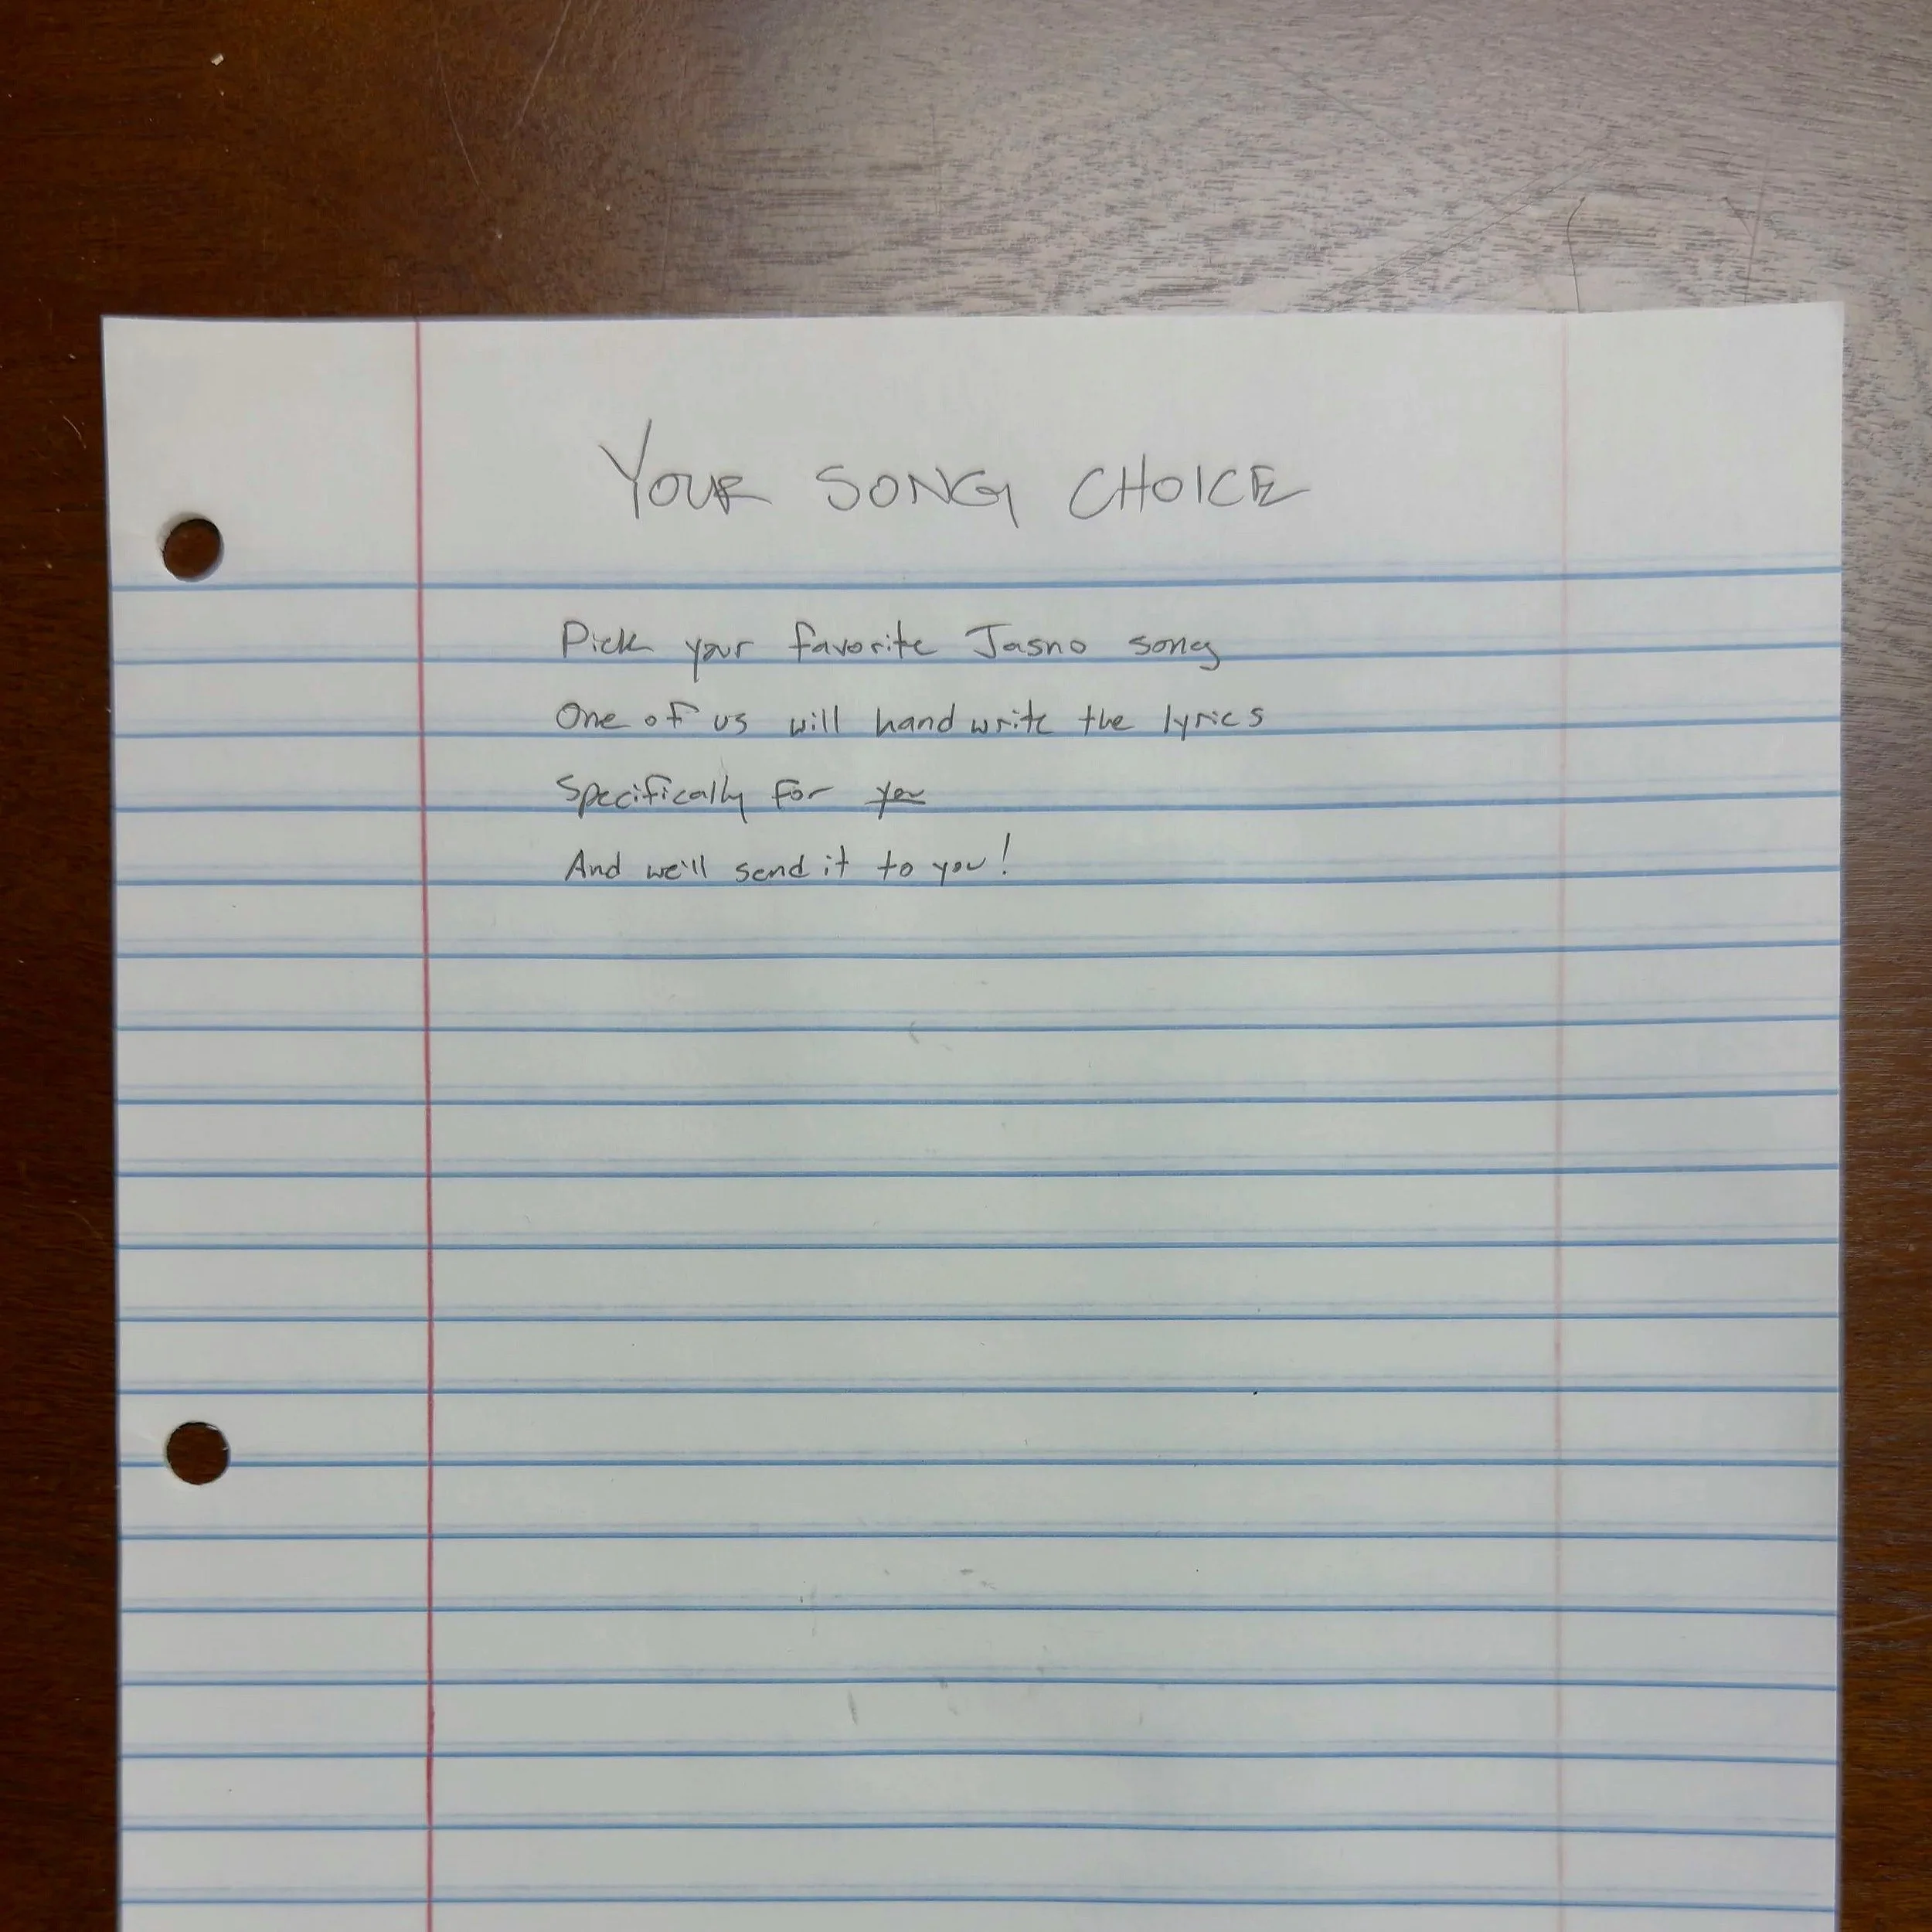 YOUR SONG CHOICE
Pick your favorite Jasno song
One of us will hand write the lyrics
Specifically for you
And we'll send it to you!